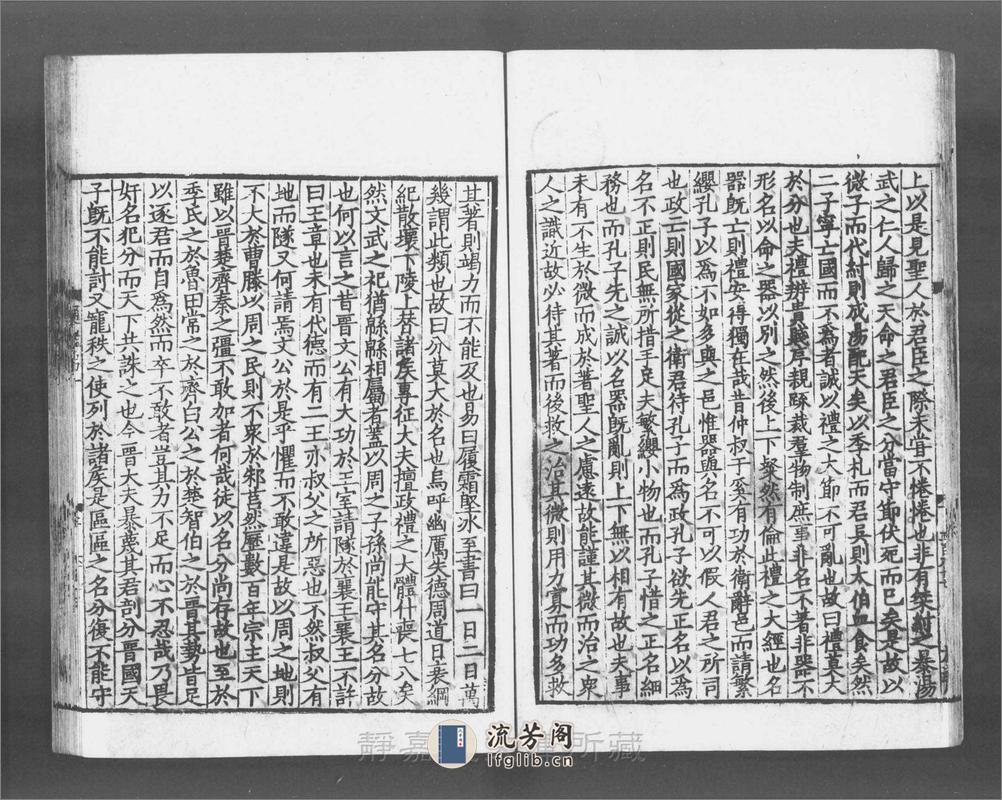 上以是見聖人於君臣之際未甞不惓惓也非有桀紂之暴湯
武之仁人歸之天命之君臣之分當守節伏死而已矣是故以
微子而代紂則成湯配天矣以季札而君吳則太伯血食矣然
二子寧亡國而不爲者誠以禮之大節不可亂也故曰禮莫大
於分也夫禮辨貴賤序親踈裁羣物制庶事非名不著非器不
形名以命之器以別之然後上下粲然有倫此禮之大經也名
器旣亡則禮安得獨在哉昔仲叔于奚有功於衛辭邑而請繁
纓孔子以爲不如多與之邑惟器與名不可以假人君之所司
也政亡則國家從之衛君待孔子而爲政孔子欲先正名以爲
名不正則民無所措手足夫繁纓小物也而孔子惜之正名細
務也而孔子先之誠以名器旣亂則上下無以相有故也夫事
未有不生於微而成於著聖人之慮遠故能謹其微而治之衆
人之識近故必待其著而後救之治其微則用力寡而功多救
其著則竭力而不能及也易曰履霜堅冰至書曰一日二日萬
幾謂此類也故曰分莫大於名也烏呼幽厲失德周道日衰綱
紀散壞下陵上替諸侯專征大夫擅政禮之大體什喪七八矣
然文武之祀猶緜緜相屬者蓋以周之子孫尚能守其名分故
也何以言之昔晉文公有大功於王室請隧於襄王襄王不許
曰王章也未有代德而有二王亦叔父之所惡也不然叔父有
地而隧又何請焉文公於是乎懼而不敢違是故以周之地則
不大於曹滕以周之民則不衆於邾莒然歷數百年宗主天下
雖以晉楚齊秦之彊不敢加者何哉徒以名分尚存故也至於
季氏之於魯田常之於齊白公之於楚智伯之於晉其勢皆足
以逐君而自爲然而卒不敢者豈其力不足而心不忍哉乃畏
奸名犯分而天下共誅之也今晉大夫暴蔑其君剖分晉國天
子旣不能討又寵秩之使列於諸侯是區區之名分復不能守
靜嘉 所藏
流芳阁
lfglib.cn